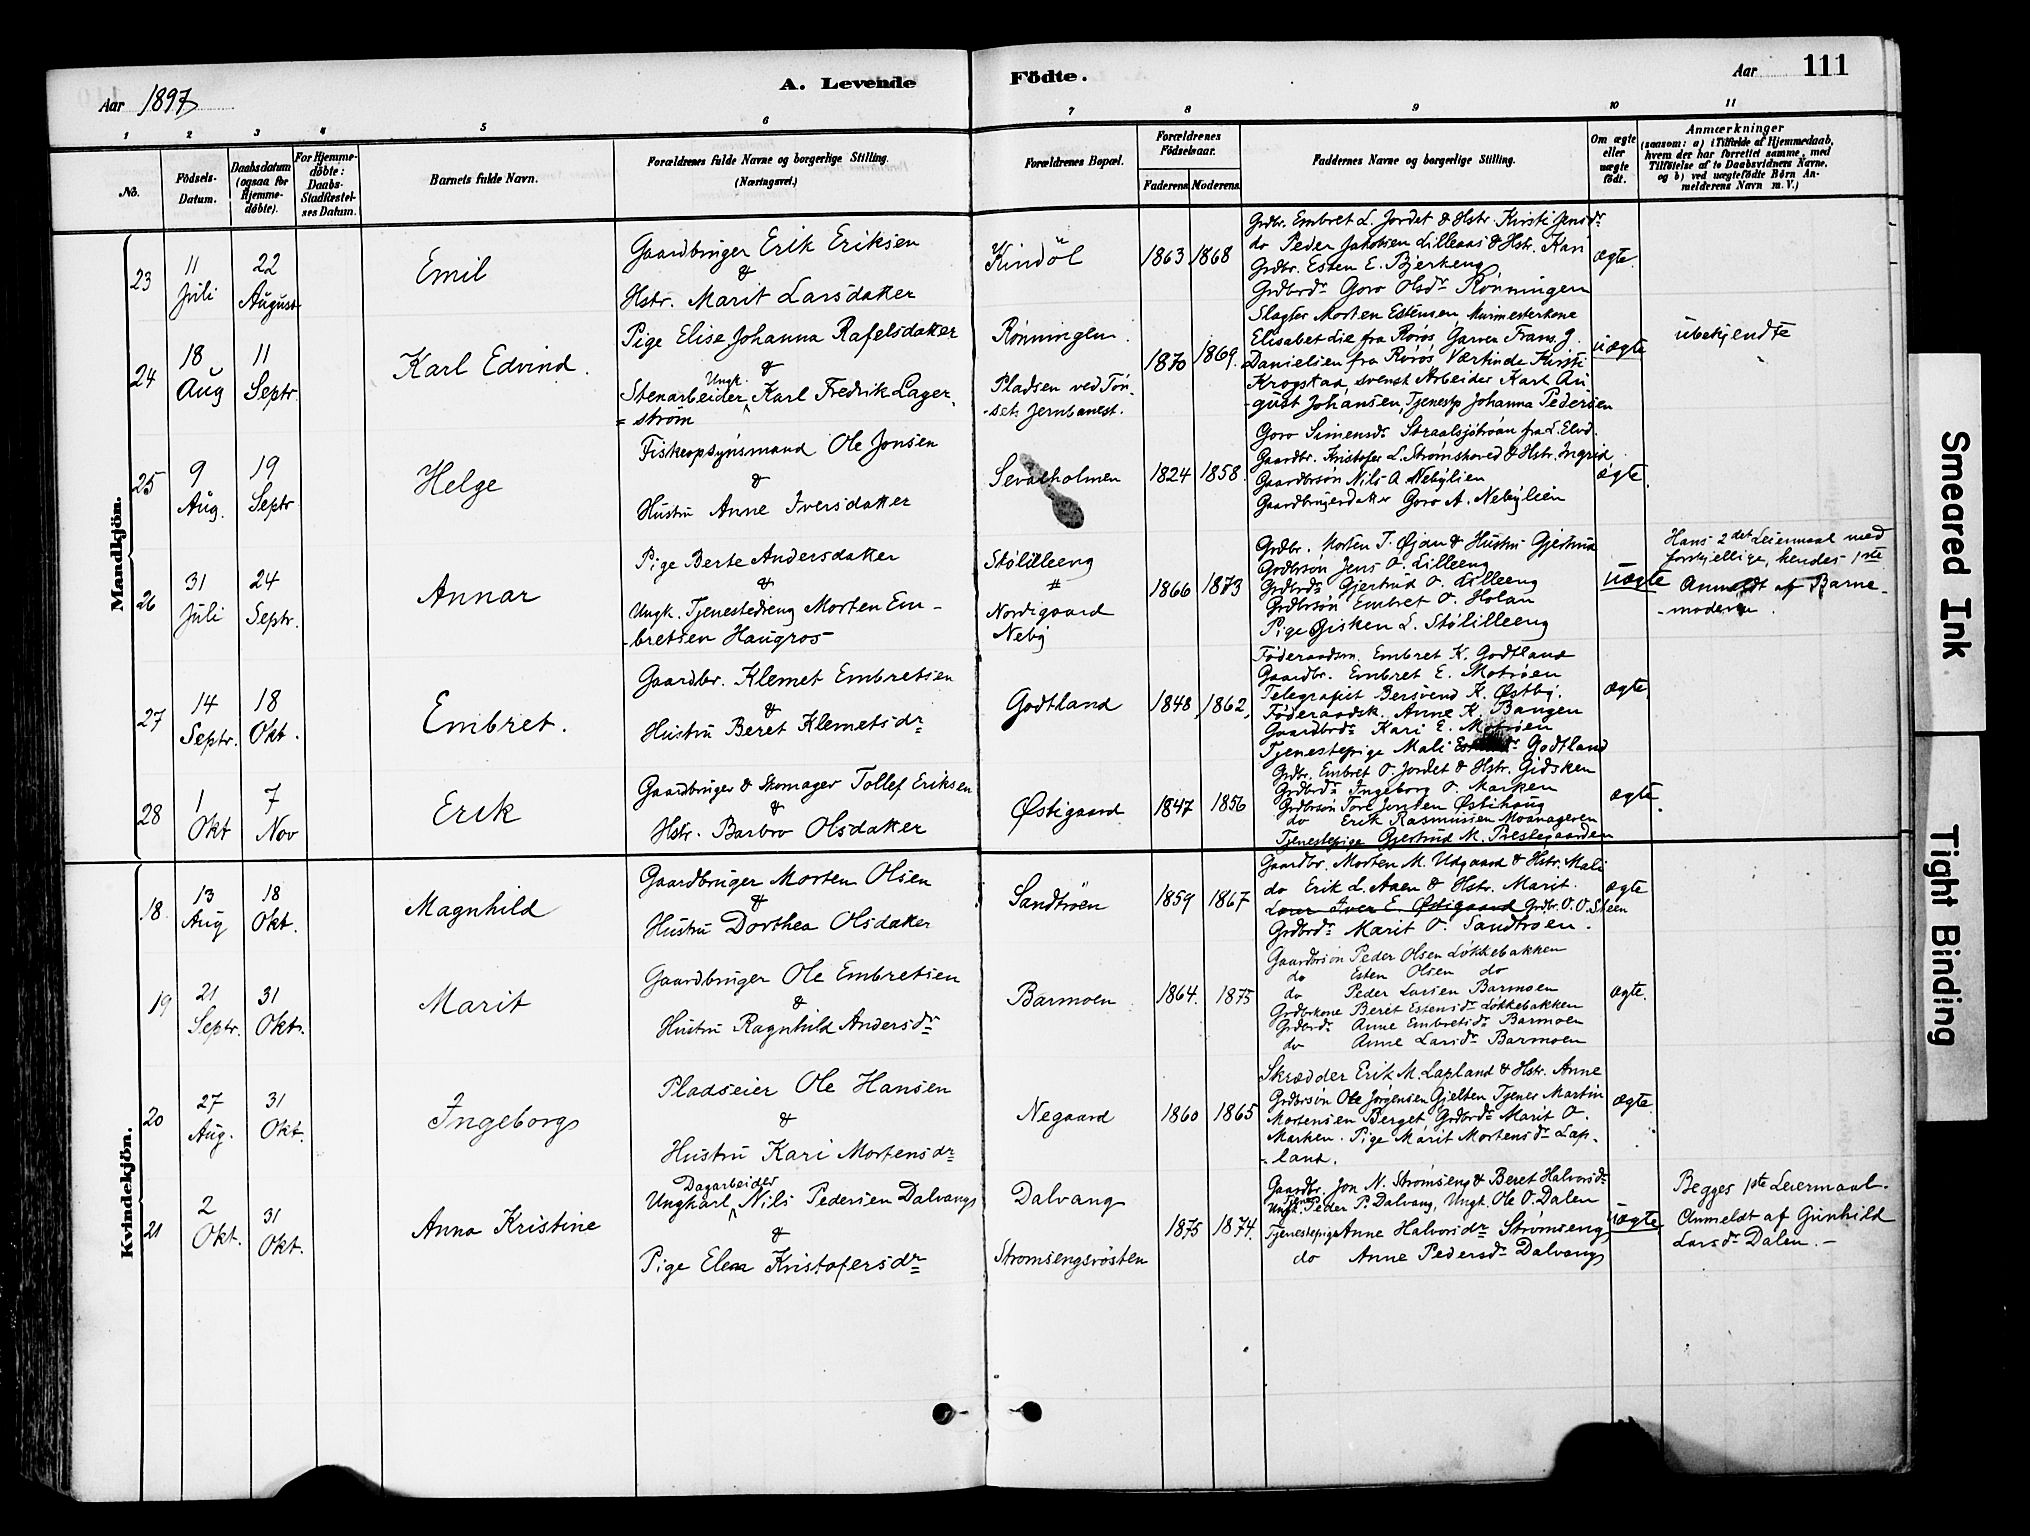 Aar 1897
A. Levende Födte.
Aar 111
1 2 3 4 5 6 7 8 9 10 11
No.
Födsels-Datum.
Daabsdatum (ogsaa for Hjemme-döbte).
For Hjemme-döbte: Daabs-Stadfæstel-ses Datum.
Barnets fulde Navn.
Forældrenes fulde Navne og borgerlige Stilling. (Næringsvei.)
Forældrenes Bopæl.
Forældrenes Fødselsaar.
Faderens Moderens
Faddernes Navne og borgerlige Stilling.
Om ægte eller uægte födt.
Anmærkninger
(saasom: a) i Tilfælde af Hjemmedaab,
hvem der har forrettet samme, med
Tilföielse af to Daabsvidners Navne,
og b) ved uægtefödte Börn An-
melderens Navn m. V.)
Mandkjön.
23
11 Juli
22 August
Emil
Gaardbruger Erik Eriksen
&
Hstr. Marit Larsdatter
Kindöl
1863 1868
Grdbr. Embret L. Jordet & Hstr. Kirsti Jensdr
do Peder Jakobsen Lilleaas & Hstr. Kari
Grdbr. Esten E. Bjerkeng
Grdbrdr Goro Olsdr Rønningen
ægte.
24
18 Aug
11 Septr.
Karl Edvind.
Pige Elise Johanna Rafelsdatter
&
Ungk.
Stenarbeider Karl Fredrik Lager-
=strøm
Rønningen
Pladsen ved Tøn-
-set Jernbanest.
1870 1869.
Slagter Morten Estensen Murmesterkone
Elisabet Lie fra Røros, Garver Frans J.
Danielsen fra Røros Værtinde Kirsti
Krogstad, svensk Arbeider Karl Au-
-gust Johansen, Tjenestp Johanna Pedersen
uægte
ubekjendte
25
9 Aug.
19 Septr
Helge
Fiskeopsynsmand Ole Jonsen
&
Hustru Anne Iversdatter
Sevatholmen
1824 1858.
Goro Simensdr Straalsjøtrøan fra L. Elvd.
Gaardbr. Kristofer L. Strømshoved & Hstr. Ingrid
Gaardbrsøn Nils A Nebylien
Gaardbrugerdatter Goro A. Nebylien
ægte.
26
31 Juli
24 Septr.
Annar
Pige Berte Andersdatter
&
Ungk. Tjenestedreng Morten Em-
-bretsen Haugros
Stølilleeng
#
Nordigaard
Neby
1866 1873
Grdbr. Morten T. Øian & Hustru Gjertrud
Grdbrsøn Jens O. Lilleeng
Grdbrdr Gjertrud O. Lilleeng
Grdbrsøn Embret O. Holan
Pige Gisken L. Stølilleeng
uægte
Hans 2det Leiermaal med
forskjellige, hendes 1ste
Anmeldt af Barne-
-moderen.
27
14 Septr.
18 Okt.
Embret.
Gaardbr. Klemet Embretsen
&
Hustru Beret Klemetsdr
Godtland
1848 1862,
Føderaadsm. Embret K. Godtland
Gaardbr. Embret E. Motrøen
Telegrafist Bersvend K. Østby.
Føderaadsk. Anne K. Bangen
Gaardbrdr Kari E. Motrøen
Tjenestepige Mali Godtland
ægte,
28
1 Okt
7 Nov
Erik
Gaardbruger & Skomager Tollef Eriksen
&
Hstr. Barbro Olsdatter
Østigaard
1847 1856
Grdbr. Embret O. Jordet & Hstr. Gidsken
Grdbrdr Ingeborg O. Marken
Grdbrsøn Tore Jonsen Østihaug
do Erik Rasmussen Moanageren
Tjenestepige Gjertrud M. Prestegaarden
ægte.
Kvindekjön.
18.
13 Aug
18 Okt.
Magnhild
Gaardbruger Morten Olsen
&
Hustru Dorthea Olsdatter
Sandtrøen
1859 1867
Gaardbr. Morten M. Udgaard & Hstr. Mali
do Erik L. Aaen & Hstr. Marit.
Lærer Iver E. Østigaard Grdbr. O. O. Steen
Grdbrdr Marit O. Sandtrøen.
ægte
19
21 Septr.
31 Oktr.
Marit
Gaardbruger Ole Embretsen
&
Hustru Ragnhild Andersdr
Barmoen
1864. 1875
Gaardbrsøn Peder Olsen Løkkebakken
do Esten Olsen do
do Peder Larsen Barmoen
Grdbrkone Beret Estensdr Løkkebakken
Grdbrdr Anne Embretsdr Barmoen
do Anne Larsdr Barmoen
ægte.
20
27 Aug.
31 Okt.
Ingeborg
Pladseier Ole Hansen
&
Hustru Kari Mortensdr
Negaard
1860 1865
Skrædder Erik M. Lapland & Hstr. Anne
Grdbrsøn Ole Jørgensen Gjelten Tjener Martin
Mortensen Berget, Grdbrdr Marit O.
Marken. Pige Marit Mortensdr Lap-
-land.
ægte.
21
2 Okt.
31 Okt.
Anna Kristine
Dagarbeider
Ungkarl Nils Pedersen Dalvang
&
Pige Elen Kristofersdr
Dalvang
Strømsengsrøsten
1875 1874.
Gaardbr. Jon N. Strømseng & Beret Halvorsdr
Ungk. Tjener Peder P. Dalvang, Ungk. Ole O. Dalen
Tjenestepige Anne Halvorsdr Strømseng
do Anne Pedersdr Dalvang
uægte
Begges 1ste Leiermaal.
Anmeldt af Gunhild
Larsdr Dalen. -
Smeared Ink
Tight Binding